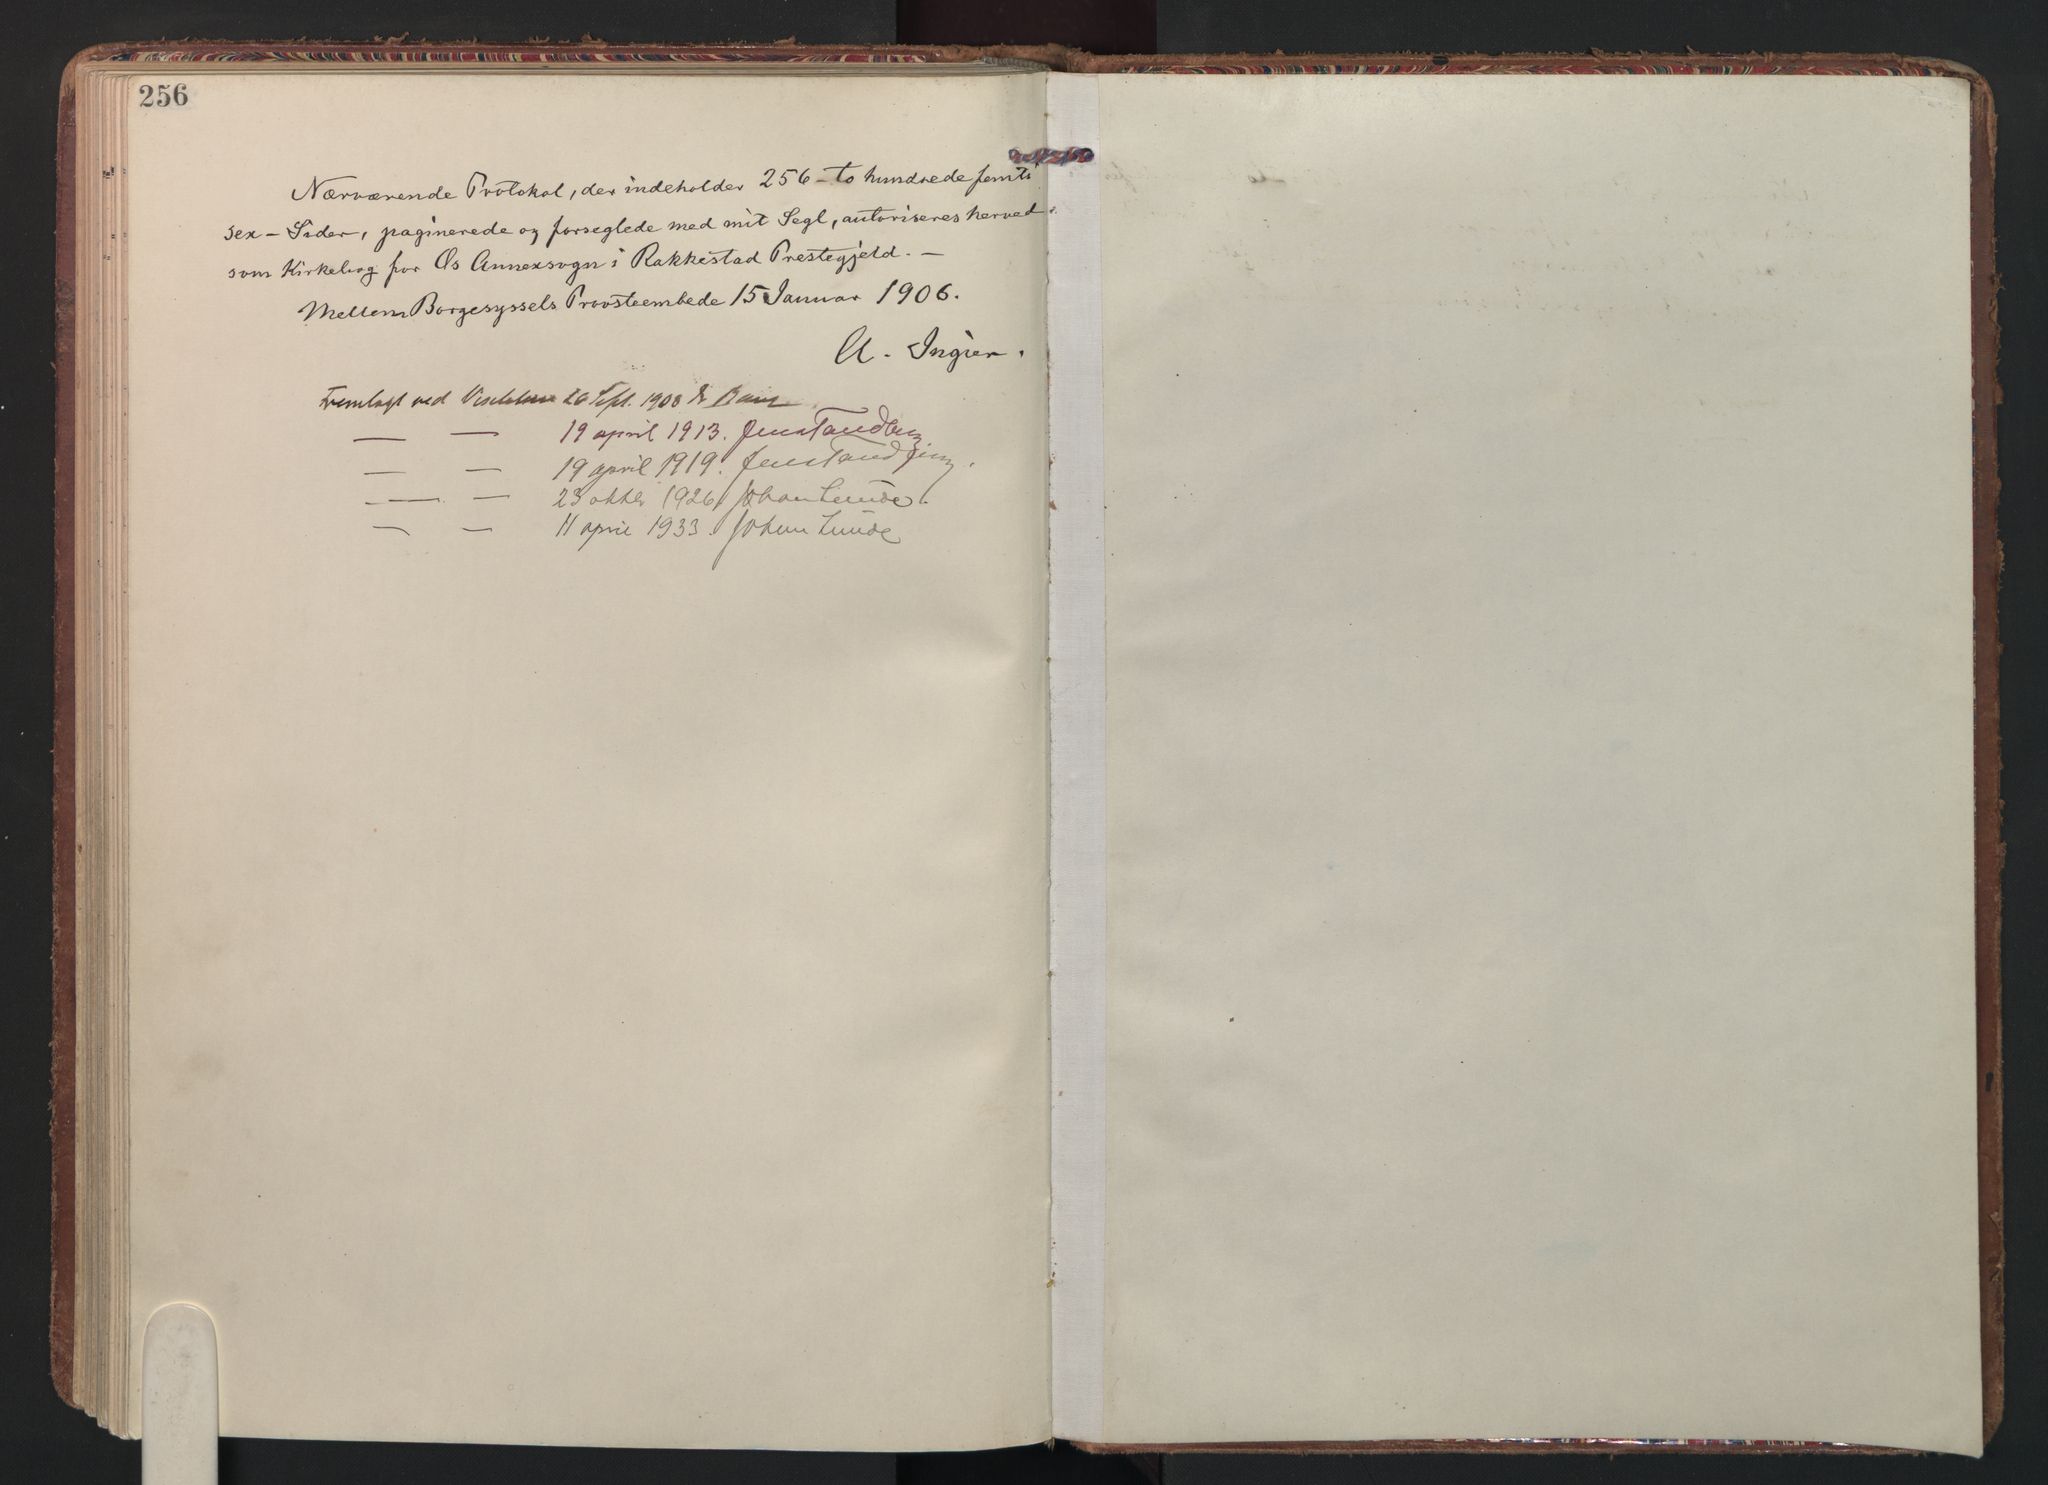 256
Nærværende Protokol, der indeholder 256 - to hundrede femti
sex - Sider, paginerede og forseglede med mit Segl, autoriseres herved
som Kirkebog for Os Annexsogn i Rakkestad Prestegjeld. -
Mellem Borgesyssels Provsteembede 15 Januar 1906.
A. Ingier.
Fremlagt ved 26 Sept. 1908
— — 19 april 1913. Jens Tandberg
— — 19 april 1919. Jens Tandberg.
— — 23 oktbr 1926. Johan Lunde.
— — 11 april 1933. Johan Lunde